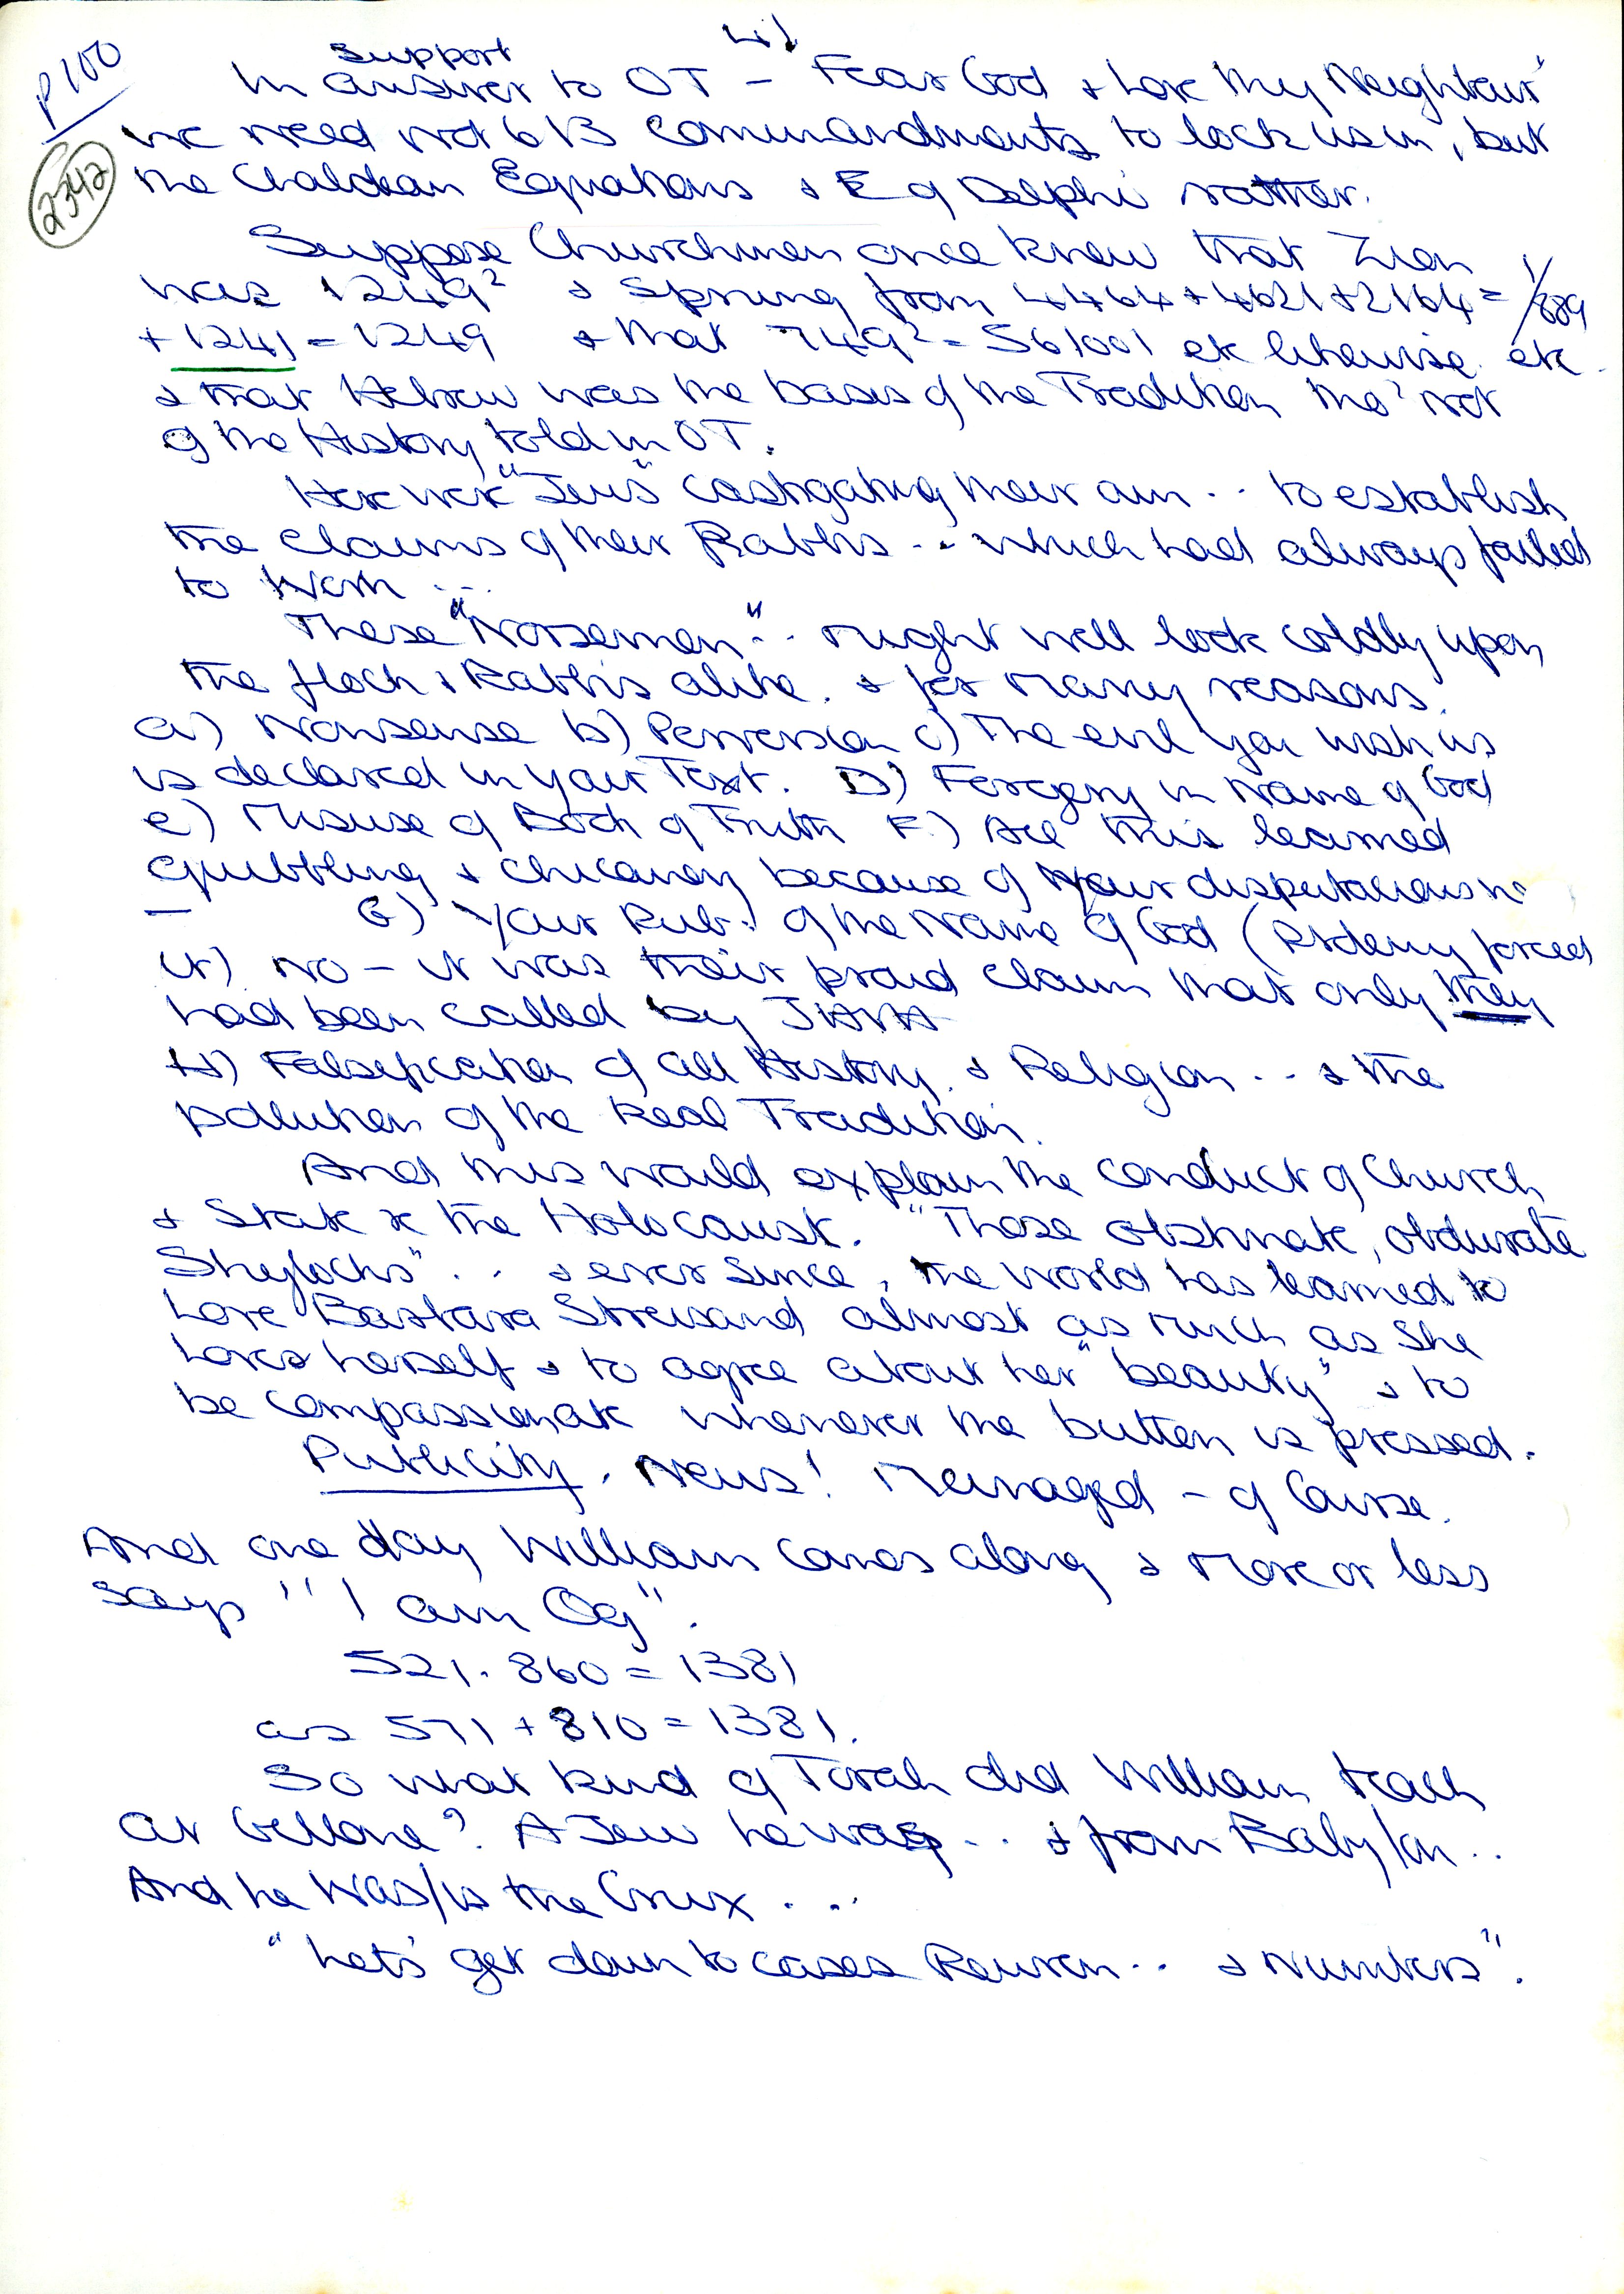 P100
2342
4)
Support
In answer to OT - "Fear God & Love Thy Neighbour"
we need not 613 Commandments to lock us in, but
the Chaldean Equations & E of Delphi rather.
Suppose Churchmen once knew that Zion
was 1249² & sprung from 4464 + 4621 + 2164 = 1/889
+ 1241 = 1249 & that 749² = 561001 etc likewise etc.
& that Hebrew was the basis of the Tradition tho' not
of the History told in OT.
Here were "Jews" castigating their own .. to establish
the claims of their Rabbis .. which had always failed
to work ...
These "Norsemen" .. might well look coldly upon
the flock & Rabbis alike. & for many reasons.
a) Nonsense b) Perversion c) The evil you wish us
is declared in your Text. D) Forgery in Name of God
e) Misuse of Book of Truth F.) All this learned
quibbling & chicanery because of your
G) Your Pub. of the Name of God (Ptolemy forced
it) No - it was their proud claim that only they
had been called by JHVH
H) Falsification of all History. & Religion .. & the
pollution of the Real Tradition.
And this would explain the conduct of Church
& State re the Holocaust. "Those obstinate, obdurate
Shylocks" .. & ever since, the world has learned to
Love Barbara Streisand almost as much as she
loves herself & to agree about her "beauty" & to
be compassionate whenever the button is pressed.
Publicity. News! Managed - of Course.
And one day William comes along & more or less
says "I am Og".
521. 860 = 1381
as 571 + 810 = 1381.
So what kind of Torah did William teach
at Gellone? A Jew he was .. & from Babylon ..
And he was/is the Crux ...
"Let's get down to cases Reuven .. & Numbers".